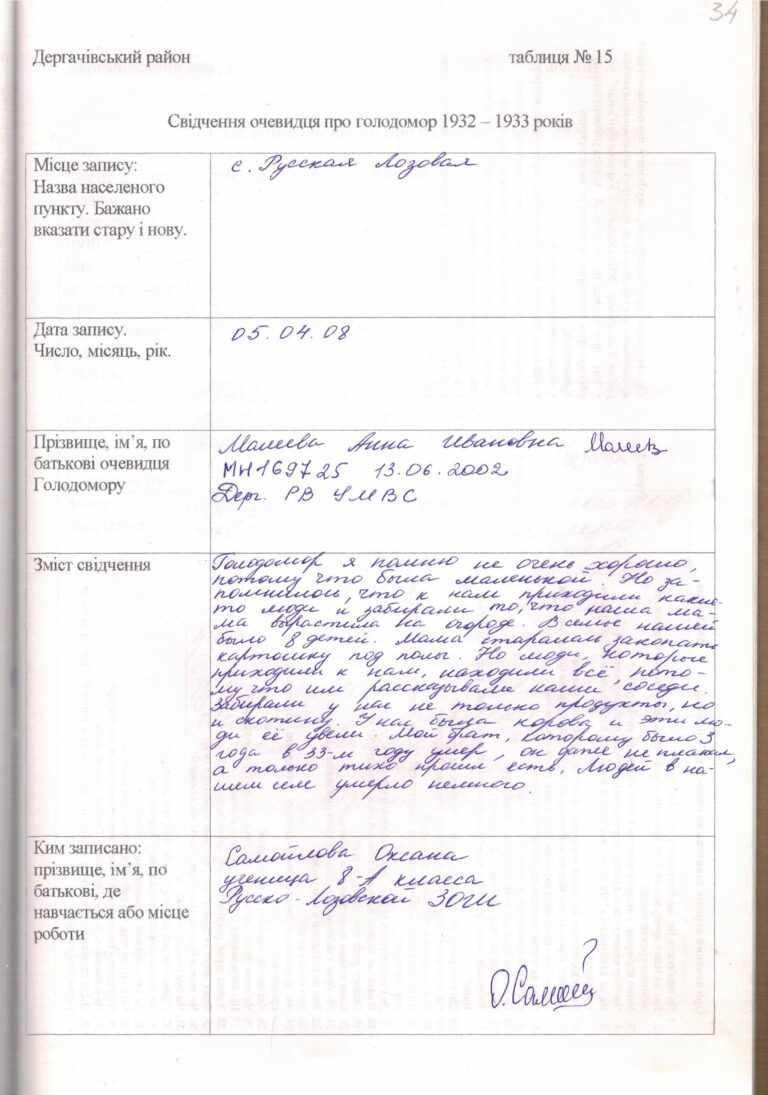 34
Дергачівський район таблиця № 15
Свідчення очевидця про голодомор 1932 – 1933 років
Місце запису:
Назва населеного
пункту. Бажано
вказати стару і нову.
с. Русская Лозовая
Дата запису.
Число, місяць, рік.
05.04.08
Прізвище, ім’я, по
батькові очевидця
Голодомору
Малеева Анна Ивановна
МН169725 13.06.2002
Дерг. РВ УМВС
Зміст свідчення
Голодомор я помню не очень хорошо,
потому что была маленькой. Но за-
помнилось, что к нам приходили какие-
то люди и забирали то, что наша ма-
ма вырастила на огороде. В семье нашей
было 8 детей. Мама старалась закопать
картошку под полы. Но люди, которые
приходили к нам, находили всё, пото-
му что им рассказывали наши соседи.
Забирали у нас не только продукты, но
и скотину. У нас была корова и эти лю-
ди её увели. Мой брат, которому было 3
года в 33-м году умер, он даже не плакал,
а только тихо просил есть. Людей в на-
шем селе умерло немного.
Ким записано:
прізвище, ім’я, по
батькові, де
навчається або місце
роботи
Самойлова Оксана
ученица 8-А класса
Русско-Лозовской ЗОШ
О.Самой